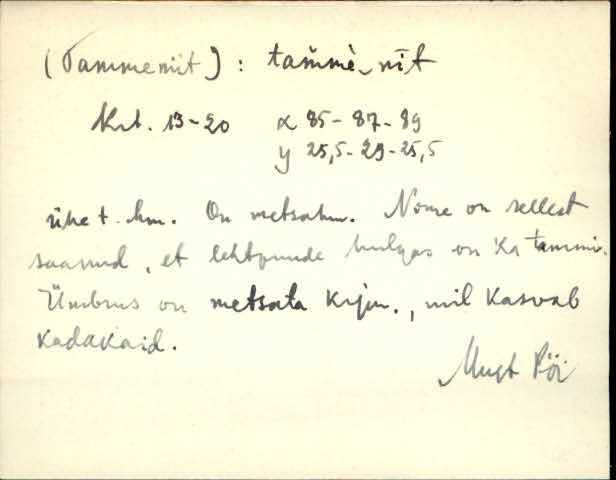 (Tammeniit) : tam̆mè‿nīt
Krt. 13-20 x 85-87-89
y 25,5-29-25,5
ühe t. hm. On metsahm. Nime on sellest
saanud, et lehtpuude hulgas on ka tammi.
Ümbrus on metsata krjm., mil kasvab
kadakaid.
Pöi